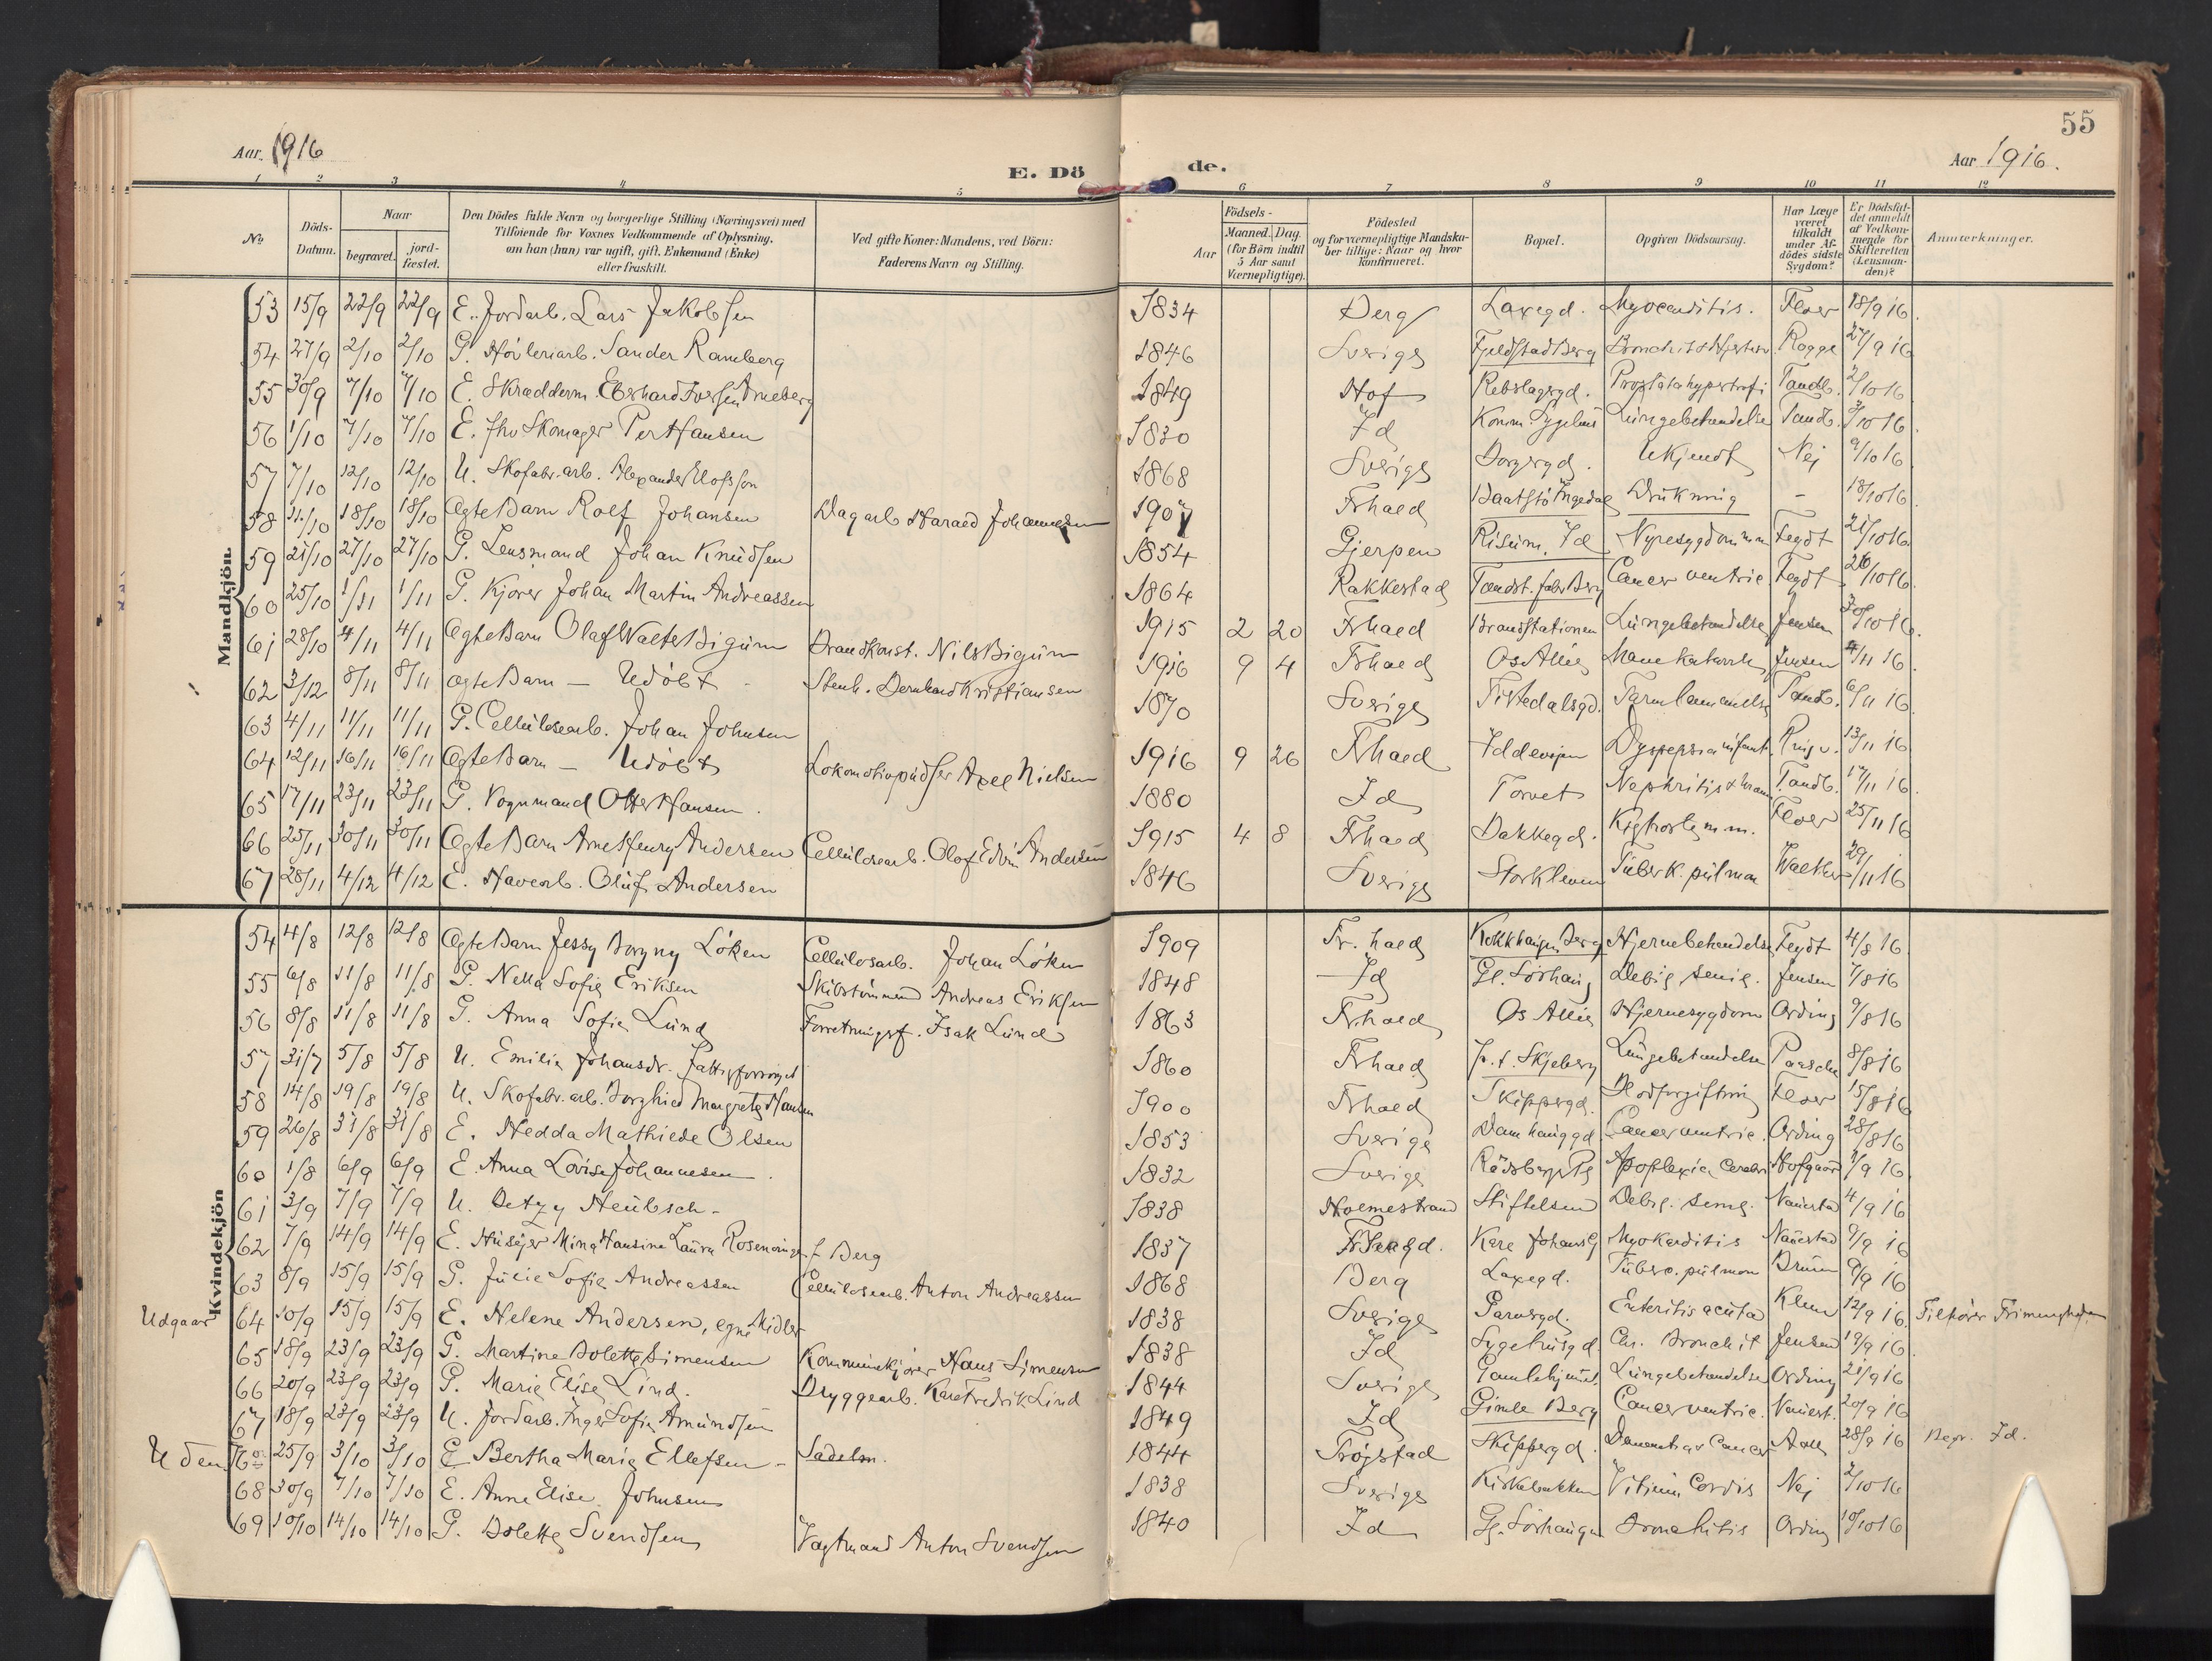 55
Aar. 1916
E. Dö de.
Aar 1916.
1 2 3 4 5 6 7 8 9 10 11 12
No
Döds-Datum.
Naar
begravet.
jord-fæstet.
Den Dödes fulde Navn og borgerlige Stilling (Næringsvei) med
Tilföiende for Voxnes Vedkommende af Oplysning,
om han (hun) var ugift, gift, Enkemand (Enke)
eller fraskilt.
Ved gifte Koner: Mandens, ved Börn:
Faderens Navn og Stilling.
Födsels-
Aar
Maaned. Dag.
(for Börn indtil
5 Aar samt
Værnepligtige).
Födested
og for værnepligtige Mandska-
ber tillige: Naar og hvor
konfirmeret.
Bopæl.
Opgiven Dödsaarsag.
Har Læge
været
tilkaldt
under Af-
dödes sidste
Sygdom?
Er Dödsfal-
det anmeldt
af Vedkom-
mende for
Skifteretten
(Lensman-
den)?
Anmærkninger.
Mandkjön.
53 15/9 22/9 22/9 E. Jordarb. Lars Jakobsen 1834 Berg Laxegd. 18/9 16.
54 27/9 2/10 2/10 G. Høvleriarb. Sander Ramberg 1846 Sverige Fjeldstad Berg Rogge 27/9 16
55 30/9 7/10 7/10 E. Skrædderm. Eberhard Iversen Arneberg 1849 Hof Rebslagergd. Prostatahypertrofi Tandb. 2/10 16
56 1/10 7/10 7/10 E. fhv Skomager Per Hansen 1830 Id Komm. Sygehus Lungebetændelse Tandb. 3/10 16
57 7/10 12/10 12/10 U. Skofabr.arb. Alexander Elofsson 1868 Sverige Borgergd. Ukjendt Nej 9/10 16
58 11/10 18/10 18/10 Ægte Barn Rolf Johansen Dagarb Harald Johannesen 1907 Frhald Drukning - 13/10 16
59 21/10 27/10 27/10 G. Lensmand Johan Knudsen 1854 Gjerpen Risum, Id Nyresygdom Fegdt 21/10 16.
60 25/10 1/11 1/11 G. Kjører Johan Martin Andreassen 1864 Rakkestad Tændst. fabr Berg Cancer ventric Fegdt 26/10 16.
61 28/10 4/11 4/11 Ægte Barn Olaf Walte Bigum Brandkonst. Nils Bigum 1915 2 20 Frhald Brandstationen Lungebetændelse Jensen 30/10 16.
62 3/12 8/11 8/11 Ægte Barn - Udøbt - Stenh. Bernhard Kristiansen 1916 9 4 Frhald Os Allé Jensen 4/11 16.
63 4/11 11/11 11/11 G. Cellulosearb. Johan Johnsen 1870 Sverige Tistedalsgd. Tandb. 6/11 16.
64 12/11 16/11 16/11 Ægte Barn - Udøbt Lokomotivpudser Axel Nielsen 1916 9 26 Frhald Iddevejen Dyspepsia infant. 13/11 16
65 17/11 23/11 23/11 G. Vognmand Otter Hansen. 1880 Id Torvet Tandb. 17/11 16
66 25/11 30/11 30/11 Ægte Barn Arne Henry Andersen Cellulosearb. Olof Edvin Andersen 1915 4 8 Frhald Bakkegd. Kighoste m.m. Floer 25/11 16
67 28/11 4/12 4/12 E. Havearb. Oluf Andersen 1846 Sverige Storkleven Tuberk. pulmon Walther 29/11 16
Kvindekjön
54 4/8 12/8 12/8 Ægte Barn Jessy Borgny Løken Cellulosarb. Johan Løken 1909 Fr.hald Hjernebetændelse Fegdt 4/8 16
55 6/8 11/8 11/8 G. Nella Sofie Eriksen Skibstømmerm Andreas Eriksen 1848 Id Gl. Sørhaug Debil. senil. Jensen 7/8 16
56 8/8 11/8 11/8 G. Anna Sofie Lund Forretningsf. Isak Lund 1863 Fr.hald Os Allé Hjernesygdom Ording 9/8 16
57 31/7 5/8 5/8 U. Emilie Johansdr. Fattigforsørget 1860 Frhald p.t. Skjeberg Lungebetændelse Paasche 8/8 16
58 14/8 19/8 19/8 U. Skofabr.arb. Borghild Margrethe Hansen 1900 Frhald Skippergd. Blodforgiftning Floer 15/8 16
59 26/8 31/8 31/8 E. Hedda Mathilde Olsen 1853 Sverige Damhauggd Cancer ventric. Ording 28/8 16
60 1/8 6/9 6/9 E. Anna Lovise Johannesen. 1832 Sverige Apoplexia Cerebri Hofgaard 1/9 16
61 3/9 7/9 7/9 U. Betzy Heubsch - 1838 Holmestrand Stiftelsen Debil. senil. Nauerstad 4/9 16
62 7/9 14/9 14/9 E. Husejer Mina Hansine Laura Roseninge f Berg 1837 Karl Johans G Myokarditis Nauerstad 9/9 16
63 8/9 15/9 15/9 G. Julie Sofie Andreassen Cellulosearb. Anton Andreassen 1868 Berg Laxegd. Tuberc. pulmon Bruun 9/9 16
Udgaar 64 10/9 15/9 15/9 E. Helene Andersen, egne Midler 1838 Sverige Enteritis acuta Klem 12/9 16. Tilhører Frimenigheden
65 18/9 23/9 23/9 G. Martine Bolette Simensen Kommunekjører Hans Simensen 1838 Id Sygehusgd. Chr. Bronchit Jensen 19/9 16
66 20/9 23/9 23/9 G. Marie Elise Lind. Bryggearb. Karl Fredrik Lind 1844 Sverige Gamlehjemmet Lungebetændelse Ording 21/9 16
67 18/9 23/9 23/9 U. Jordarb. Inger Sofie Amundsen 1849 Id Gimle Berg Cancer ventric. Nauerst. 20/9 16
Uden No 25/9 3/10 3/10 E Bertha Marie Ellefsen - Sadelm. 1844 Trøgstad Skippergd. 28/9 16 Begr. Id.
68 30/9 7/10 7/10 E. Anne Elise Johnsen 1838 Sverige Kirkebakken Vitium Cordis Nej 2/10 16
69 10/10 14/10 14/10 G. Bolette Svendsen Vagtmand Anton Svendsen 1840 Id Gl. Sørhaugen Bronchitis Ording 10/10 16